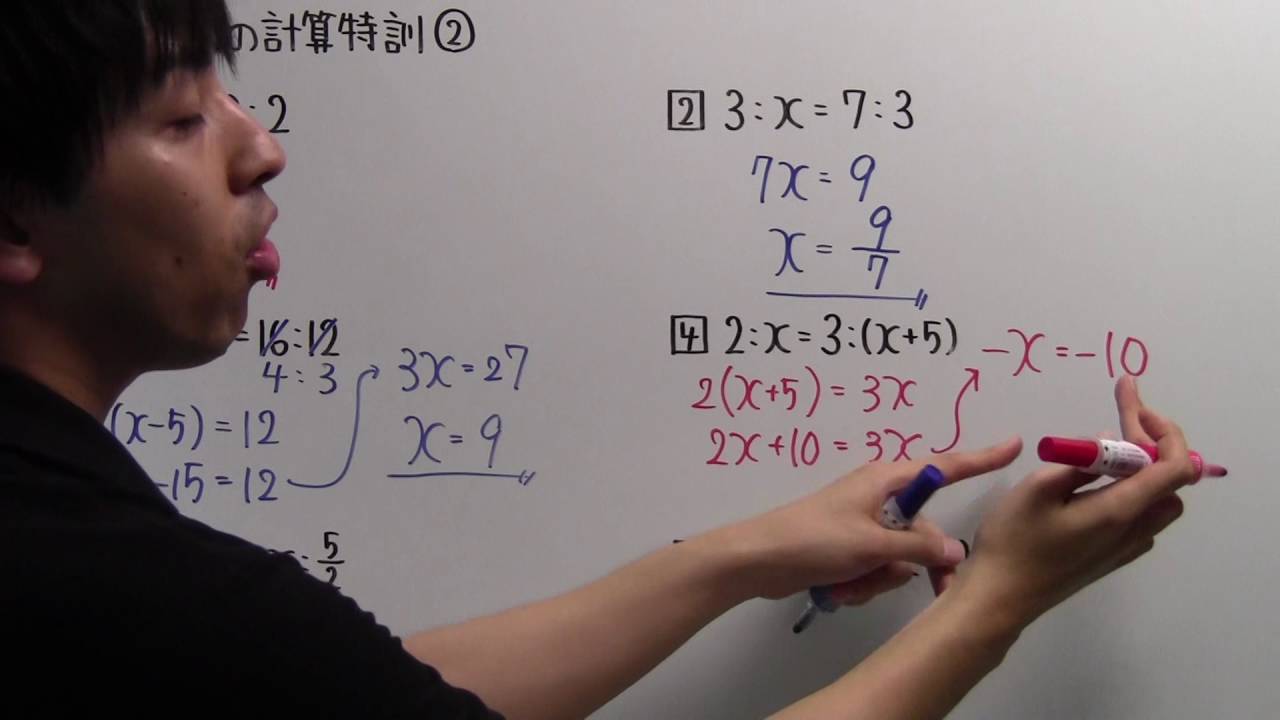 の計算特訓②
: 2
= 16 : 12
4 : 3
(x-5) = 12
-15 = 12
3x = 27
x = 9
: 5/2
2 3 : x = 7 : 3
7x = 9
x = 9/7
4 2 : x = 3 : (x+5)
2(x+5) = 3x
2x+10 = 3x
-x = -10